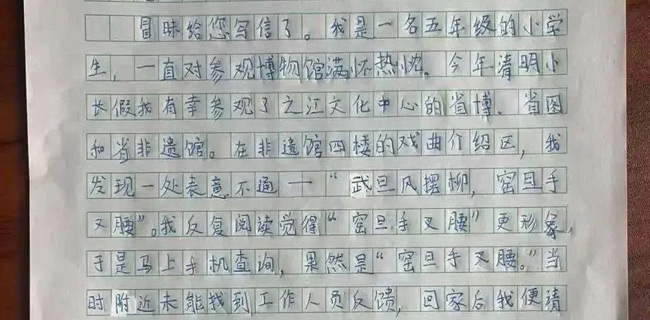 冒昧给您写信了。我是一名五年级的小学
生，一直对参观博物馆满怀热忱。今年清明小
长假我有幸参观了之江文化中心的省博、省图
和省非遗馆。在非遗馆四楼的戏曲介绍区，我
发现一处表意不通——“武旦风摆柳，窑旦手
又腰”。我反复阅读觉得“窑旦手叉腰”更形象，
于是马上手机查询，果然是“窑旦手叉腰。”当
时附近未能找到工作人员反馈，回家后我便请